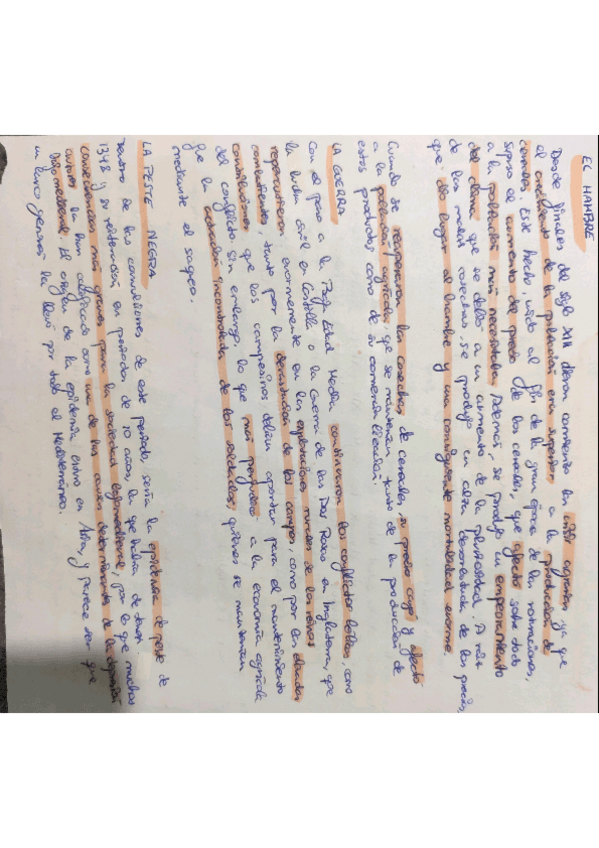 EL HAMBRE
Desde finales del siglo XIII dieron comienzo las crisis agrarias ya que
el crecimiento de la población era superior a la producción de
cereales. Este hecho, unido al fin de la gran época de las roturaciones,
supuso el aumento del precio de los cereales, que afectó sobre todo
a la población más necesitada. Además, se produjo un empeoramiento
del clima que se debió a un aumento de la pluviosidad. A raíz
de las malas cosechas, se produjo un alza desorbitada de los precios,
que dio lugar al hambre y una consiguiente mortandad enorme.
Cuando se recuperaron las cosechas de cereales, su precio cayó y afectó
a la población agrícola, que se mantenían tanto de la producción de
estos productos como de su comercialización.
LA GUERRA
Con el paso a la Baja Edad Media continuaron los conflictos bélicos, como
la lucha civil en Castilla o la Guerra de las Dos Rosas en Inglaterra, que
repercutieron enormemente en las explotaciones rurales de los reinos
combatientes, tanto por la devastación de los campos, como por las elevadas
contribuciones que los campesinos debían aportar para el mantenimiento
del conflicto. Sin embargo, lo que más perjudicó a la economía agrícola
fue la actuación incontrolada de los soldados, quienes se mantenían
mediante el saqueo.
LA PESTE NEGRA
Dentro de las convulsiones de este período, sería la epidemia de peste de
1348 y su reiteración en períodos de 10 años, la que habría de traer
consecuencias más graves para la sociedad bajomedieval, por lo que muchos
autores la han calificado como una de las causas determinantes de la depresión
bajomedieval. El origen de la epidemia estuvo en Asia, y parece ser que
un barco genovés la llevó por todo el Mediterráneo.